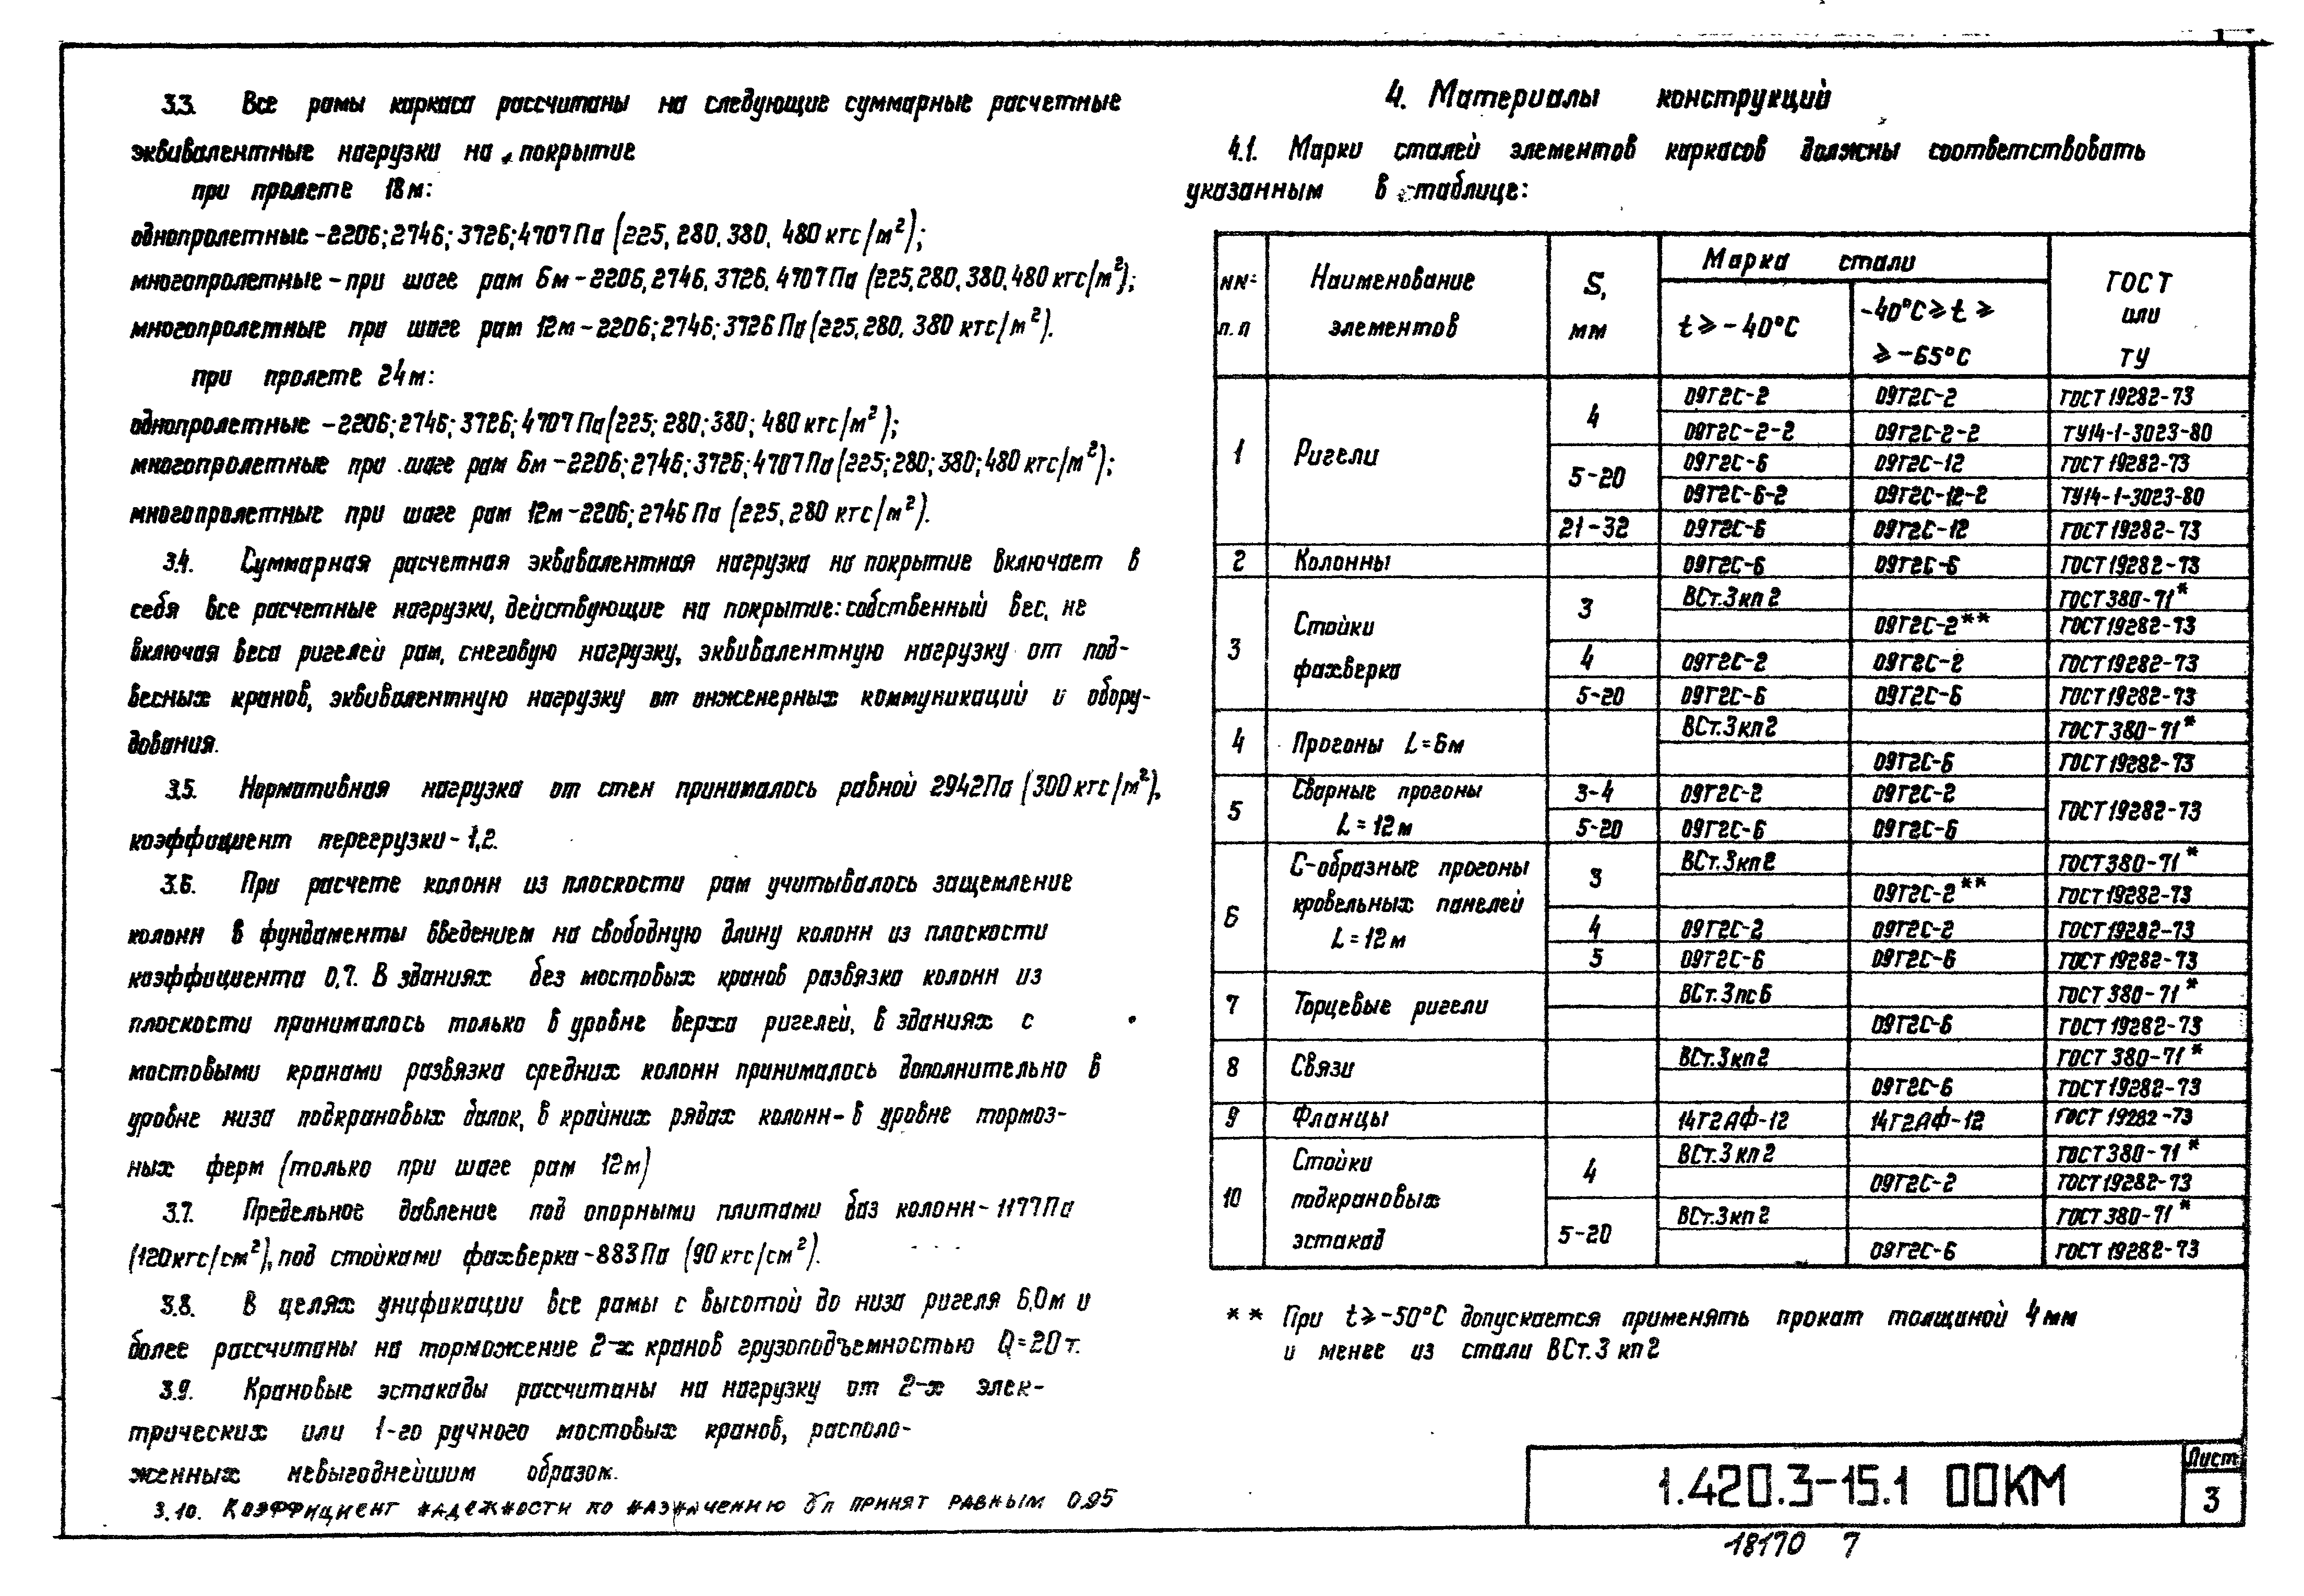 3.3. Все рамы каркаса рассчитаны на следующие суммарные расчетные
эквивалентные нагрузки на покрытие
при пролете 18м:
однопролетные -2206; 2746; 3726; 4707 Па (225, 280, 380, 480 кгс/м²);
многопролетные - при шаге рам 6м -2206, 2746, 3726, 4707 Па (225, 280, 380, 480 кгс/м²);
многопролетные при шаге рам 12м -2206; 2746; 3726 Па (225, 280, 380 кгс/м²).
при пролете 24м:
однопролетные -2206; 2746; 3726; 4707 Па (225; 280; 380; 480 кгс/м²);
многопролетные при шаге рам 6м -2206; 2746; 3726; 4707 Па (225; 280; 380; 480 кгс/м²);
многопролетные при шаге рам 12м -2206; 2746 Па (225, 280 кгс/м²).
3.4. Суммарная расчетная эквивалентная нагрузка на покрытие включает в
себя все расчетные нагрузки, действующие на покрытие: собственный вес, не
включая веса ригелей рам, снеговую нагрузку, эквивалентную нагрузку от под-
весных кранов, эквивалентную нагрузку от инженерных коммуникаций и обору-
дования.
3.5. Нормативная нагрузка от стен принималось равной 2942Па (300 кгс/м²),
коэффициент перегрузки - 1,2.
3.6. При расчете колонн из плоскости рам учитывалось защемление
колонн в фундаменты введением на свободную длину колонн из плоскости
коэффициента 0,7. В зданиях без мостовых кранов развязка колонн из
плоскости принималось только в уровне верха ригелей, в зданиях с
мостовыми кранами развязка средних колонн принималось дополнительно в
уровне низа подкрановых балок, в крайних рядах колонн - в уровне тормоз-
ных ферм (только при шаге рам 12м)
3.7. Предельное давление под опорными плитами баз колонн - 1177Па
(120кгс/см²), под стойками фахверка - 883Па (90 кгс/см²).
3.8. В целях унификации все рамы с высотой до низа ригеля 6,0м и
более рассчитаны на торможение 2-х кранов грузоподъемностью Q=20т.
3.9. Крановые эстакады рассчитаны на нагрузку от 2-х элек-
трических или 1-го ручного мостовых кранов, располо-
женных невыгоднейшим образок.
3.10. Коэффициент надежности по назначению γп принят равным 0.95
4. Материалы конструкций
4.1. Марки сталей элементов каркасов должны соответствовать
указанным в таблице:
NN- п.п | Наименование элементов | S, мм | Марка стали | ГОСТ или ТУ
t ⩾ -40°С | -40°С ⩾ t ⩾ ⩾ -65°С
1 Ригели 4 09Г2С-2 09Г2С-2 ГОСТ 19282-73
09Г2С-2-2 09Г2С-2-2 ТУ14-1-3023-80
5-20 09Г2С-6 09Г2С-12 ГОСТ 19282-73
09Г2С-6-2 09Г2С-12-2 ТУ14-1-3023-80
21-32 09Г2С-6 09Г2С-12 ГОСТ 19282-73
2 Колонны 09Г2С-6 09Г2С-6 ГОСТ 19282-73
3 Стойки фахверка 3 ВСт.3кп2 ГОСТ 380-71*
09Г2С-2** ГОСТ 19282-73
4 09Г2С-2 09Г2С-2 ГОСТ 19282-73
5-20 09Г2С-6 09Г2С-6 ГОСТ 19282-73
4 Прогоны L=6м ВСт.3кп2 ГОСТ 380-71*
09Г2С-6 ГОСТ 19282-73
5 Сварные прогоны L=12м 3-4 09Г2С-2 09Г2С-2 ГОСТ 19282-73
5-20 09Г2С-6 09Г2С-6
6 С-образные прогоны кровельных панелей L=12м 3 ВСт.3кп2 ГОСТ 380-71*
09Г2С-2** ГОСТ 19282-73
4 09Г2С-2 09Г2С-2 ГОСТ 19282-73
5 09Г2С-6 09Г2С-6 ГОСТ 19282-73
7 Торцевые ригели ВСт.3пс6 ГОСТ 380-71*
09Г2С-6 ГОСТ 19282-73
8 Связи ВСт.3кп2 ГОСТ 380-71*
09Г2С-6 ГОСТ 19282-73
9 Фланцы 14Г2АФ-12 14Г2АФ-12 ГОСТ 19282-73
10 Стойки подкрановых эстакад 4 ВСт.3кп2 ГОСТ 380-71*
09Г2С-2 ГОСТ 19282-73
5-20 ВСт.3кп2 ГОСТ 380-71*
09Г2С-6 ГОСТ 19282-73
** При t ⩾ -50°С допускается применять прокат толщиной 4мм
и менее из стали ВСт.3 кп2
1.420.3-15.1 00КМ
Лист
3
18170 7